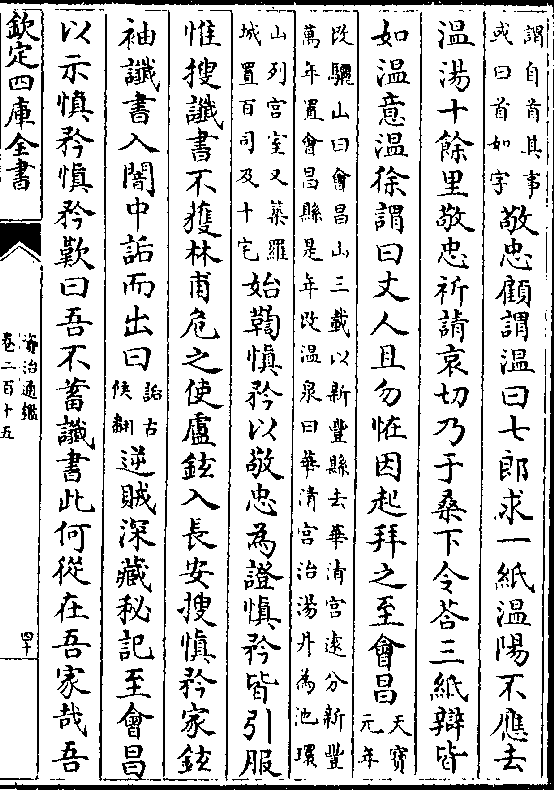 謂自首其事
或曰首如字
敬忠顧謂溫曰七郎求一紙溫陽不應去
溫湯十餘里敬忠祈請哀切乃于桑下令荅三紙辯皆
如溫意溫徐謂曰丈人且勿恠因起拜之至會昌
天寶
元年
改驪山曰會昌山三載以新豐縣去華清宮遠分新豐
萬年置會昌縣是年改溫泉曰華清宮治湯井為池環
山列宮室又築羅
城置百司及十宅
始鞫慎矜以敬忠為證慎矜皆引服
惟搜讖書不獲林甫危之使盧鉉入長安搜慎矜家鉉
袖讖書入闇中詬而出曰
詬古
候翻
逆賊深藏秘記至會昌
以示慎矜慎矜歎曰吾不蓄讖書此何從在吾家哉吾
欽定四庫全書
資治通鑑
卷二百十五
四十